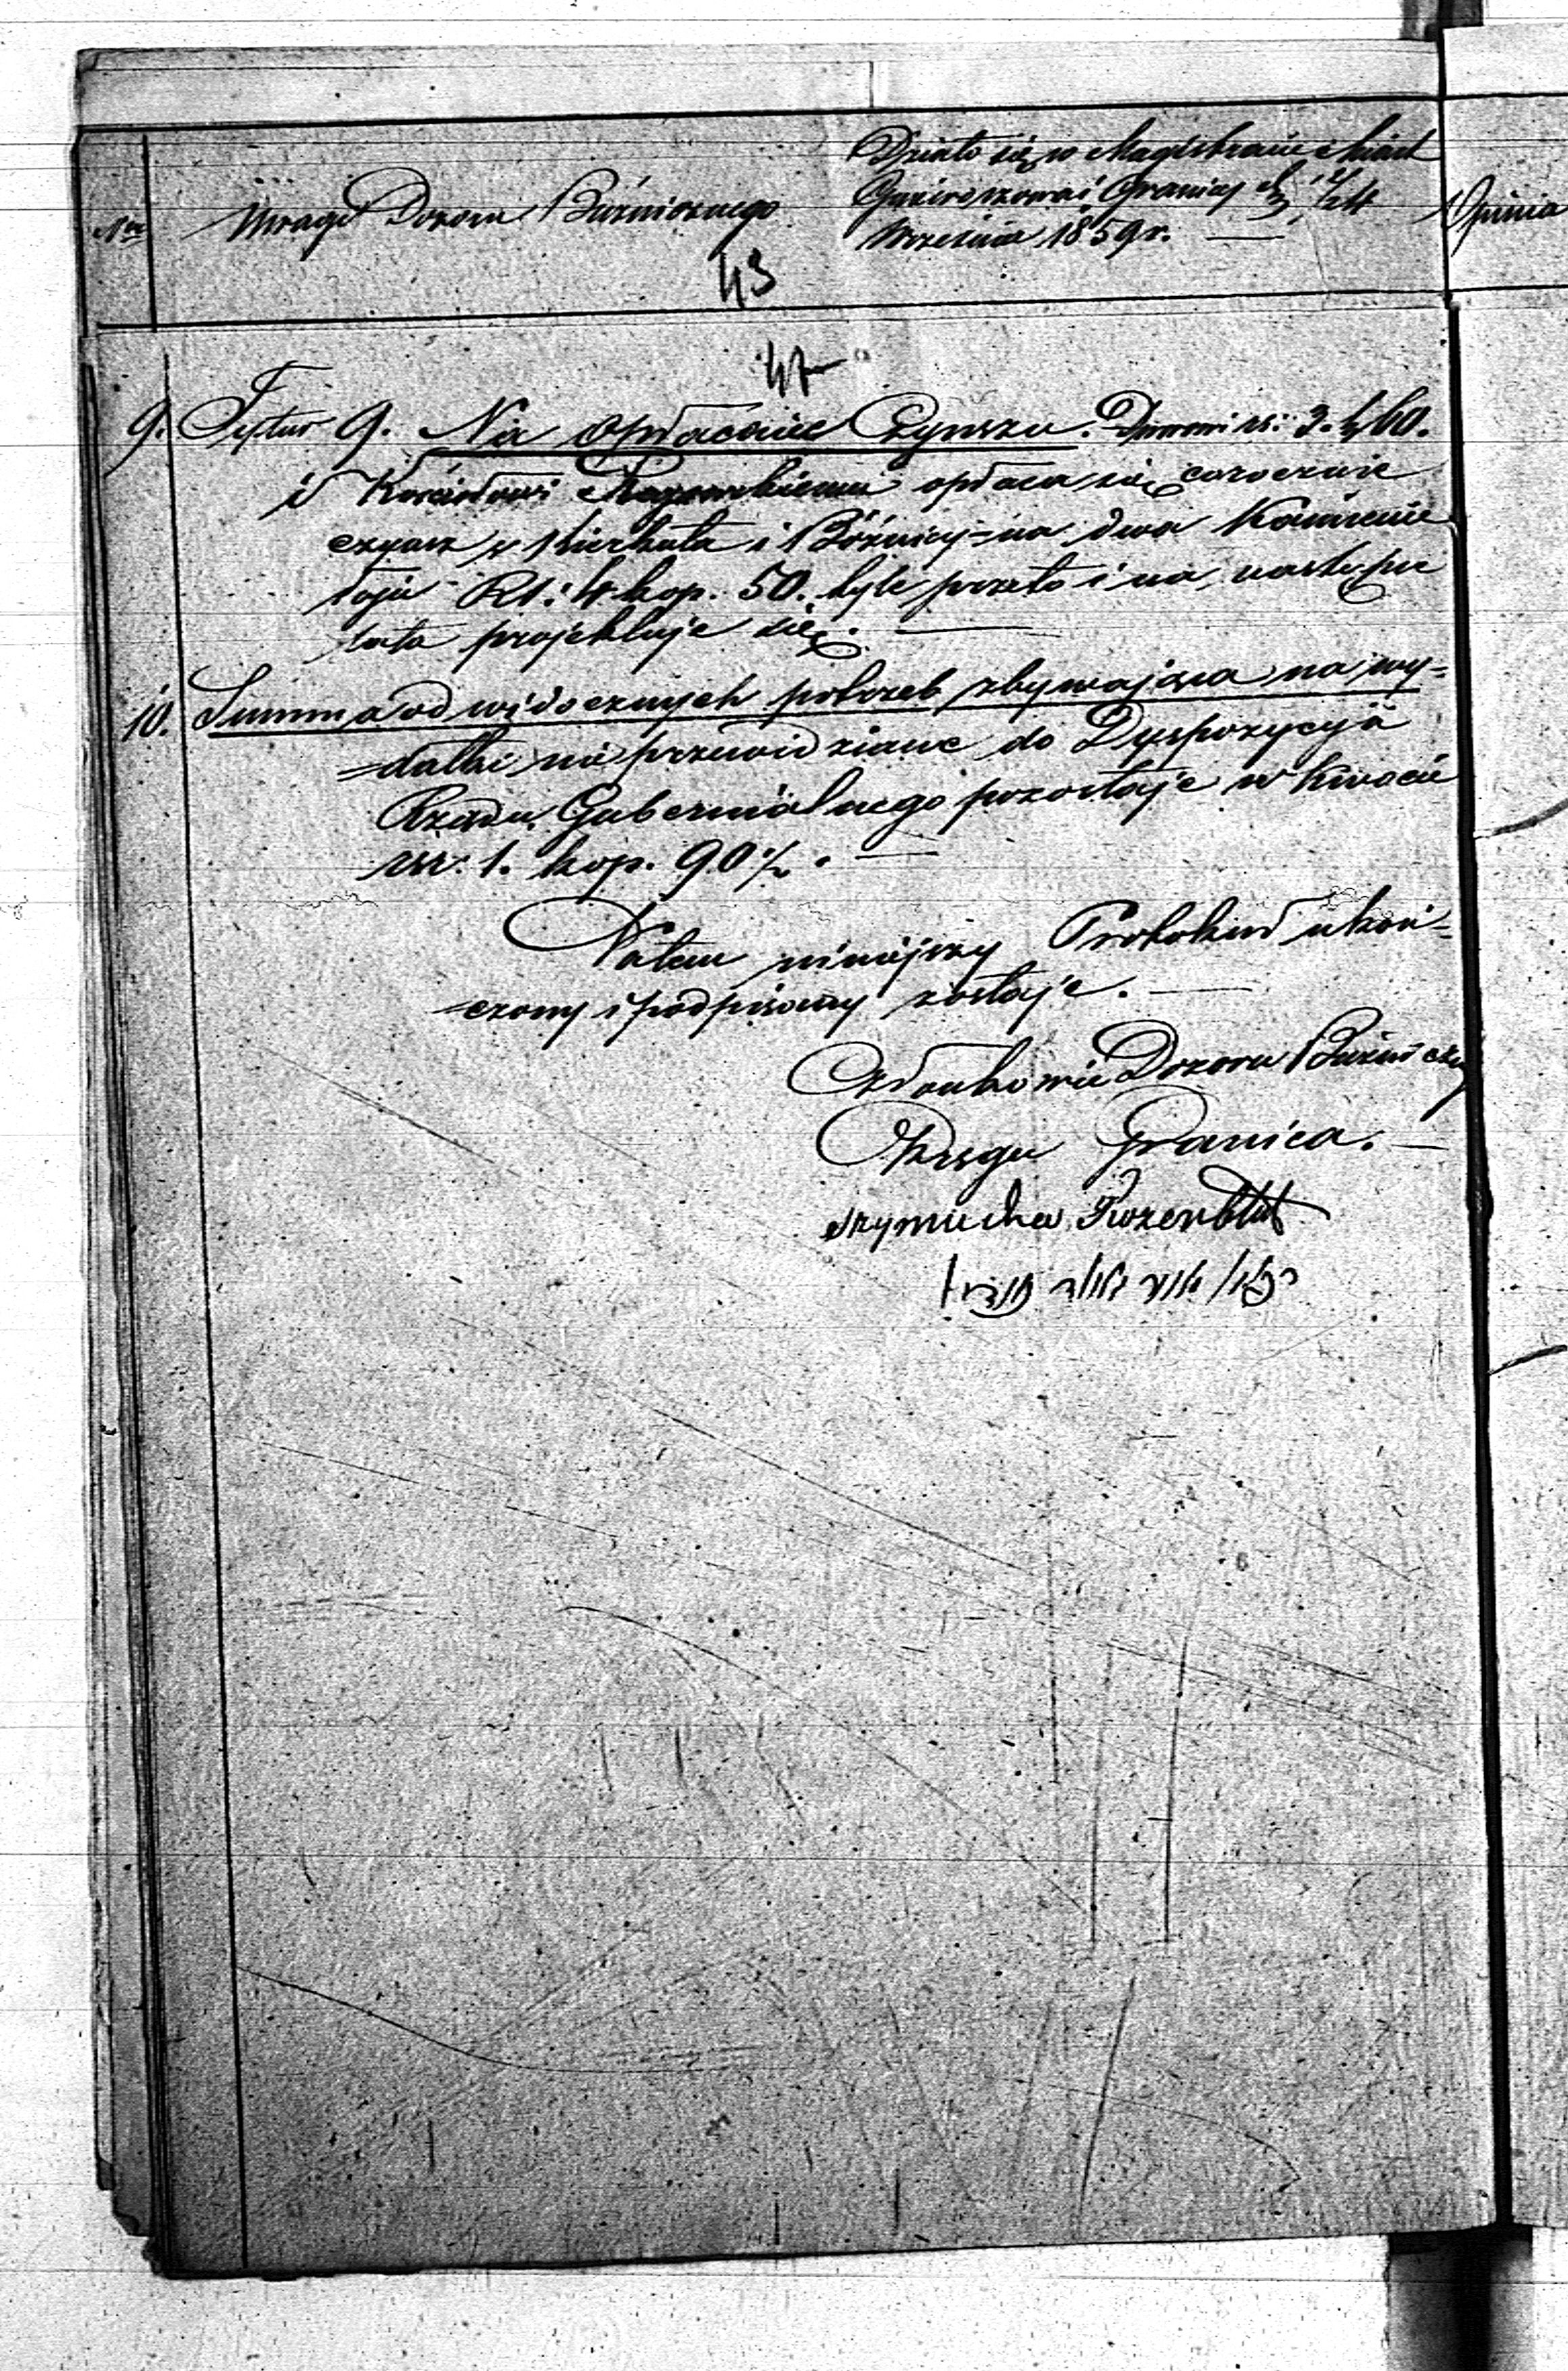 Nr
Uwagi Dozoru Bużnicznego
Działo się w Magistracie Miast
Gniewoszowa i Granicy d. 12/24
Września 1859 r.
Opinia
43
47
9. Tytuł 9. Na opłacenie Czynszu. rs: 3. k 60.
i Kościołowi opłaca się corocznie
czynsz z Kierkuta i Bóżnicy na dwa
Rs: 4 kop. 50. tyle przeto i na następne
lata projektuje się.
10. Summa od widocznych potrzeb zbywająca na wy-
=datki nie przewidziane do Dyspozycyi
Rządu Gubernialnego pozostaje w kwocie
rsr: 1. kop. 90 1/2.
Na tem niniejszy Protokuł ukoń-
=czony i podpisany zostaje.
Członkowie Dozoru Bużniczn
Okręgu Granica.
Szymcha Rozenblat